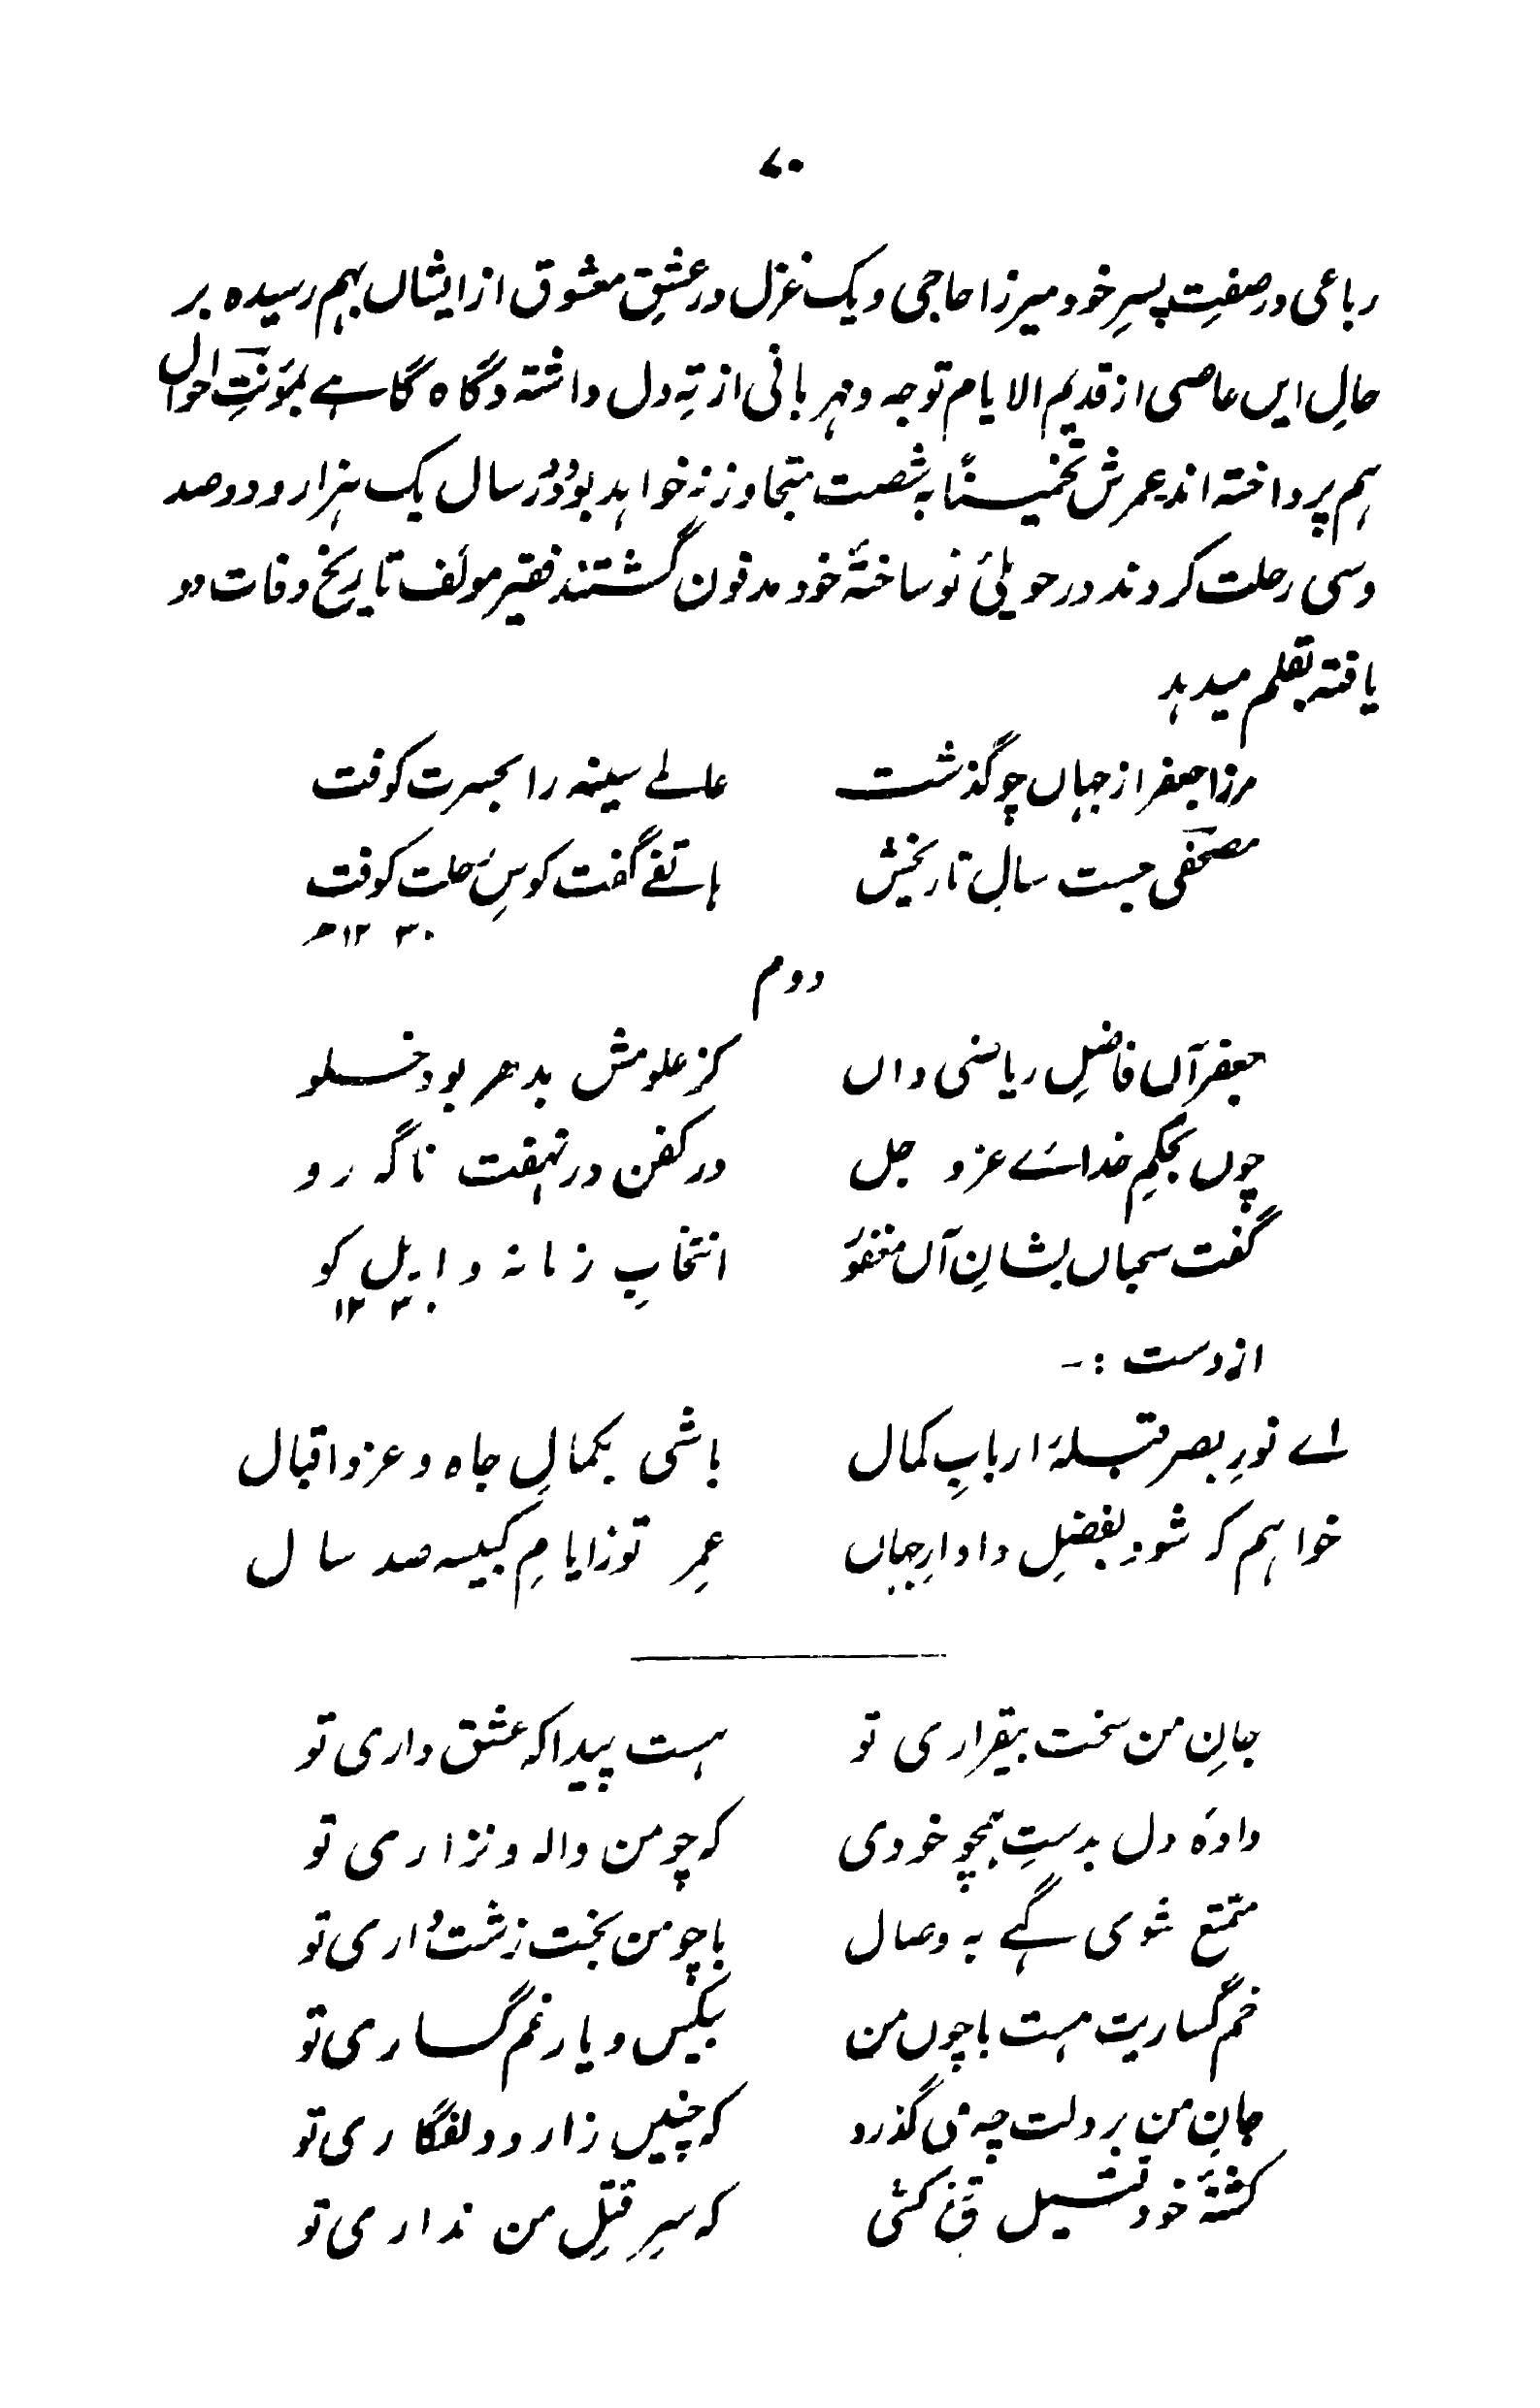 ۷۰
رباعی در صفتِ پسرِ خود میرزا حاجی و یک غزل در عشقِ معشوق از ایشاں بہم رسیدہ بر
حالِ ایں عاصی از قدیم الایام توجہ و مہربانی از تہِ دل داشتہ و گاہ گاہے بمؤنتِ احوال
ہم پرداختہ اند عمرش تخمیناً بہ شصت متجاوز نہ خواہد بود در سال یک ہزار و دو صد
و سی رحلت کردند در حویلئ نو ساختۂ خود مدفون گشتند فقیر مولف تاریخ وفات دو
یافتہ بقلم میدہد
مرزا جعفر از جہاں چو گذشت عالمے سینہ را بحسرت کوفت
مصحفی جست سالِ تاریخش ہاتفے گفت کوسِ رحلت کوفت
۱۲۳۰ھ
دوم
جعفر آں فاضلِ ریاضی داں کز علومش بدھر بود خلو
چوں بحکمِ خداے عز و جل در کفن در نہفت ناگہ رو
گفت سحباں بشانِ آں مغفور انتخابِ زمانہ و ابلِ کو
۱۲۳۰
ازوست :-
اے نورِ بصر قبلۂ اربابِ کمال باشی بکمالِ جاہ و عز و اقبال
خواہم کہ شود بفضلِ دادارِ جہاں عمرِ تو زایامِ کبیسہ صد سال
جانِ من سخت بیقراری تو ہست پیدا کہ عشق داری تو
دادۂ دل بدستِ ہمچو خودی کہ چو من والہ و نزاری تو
متمتع شوی گہے بہ وصال با چو من بخت زشت داری تو
غم گساریت ہست با چوں من بیکس و یار غم گساری تو
جانِ من بر دلت چہ می گذرد کہ چنیں زار و دلفگاری تو
کشتۂ خود کشی کہ سرِ قتلِ من نداری تو